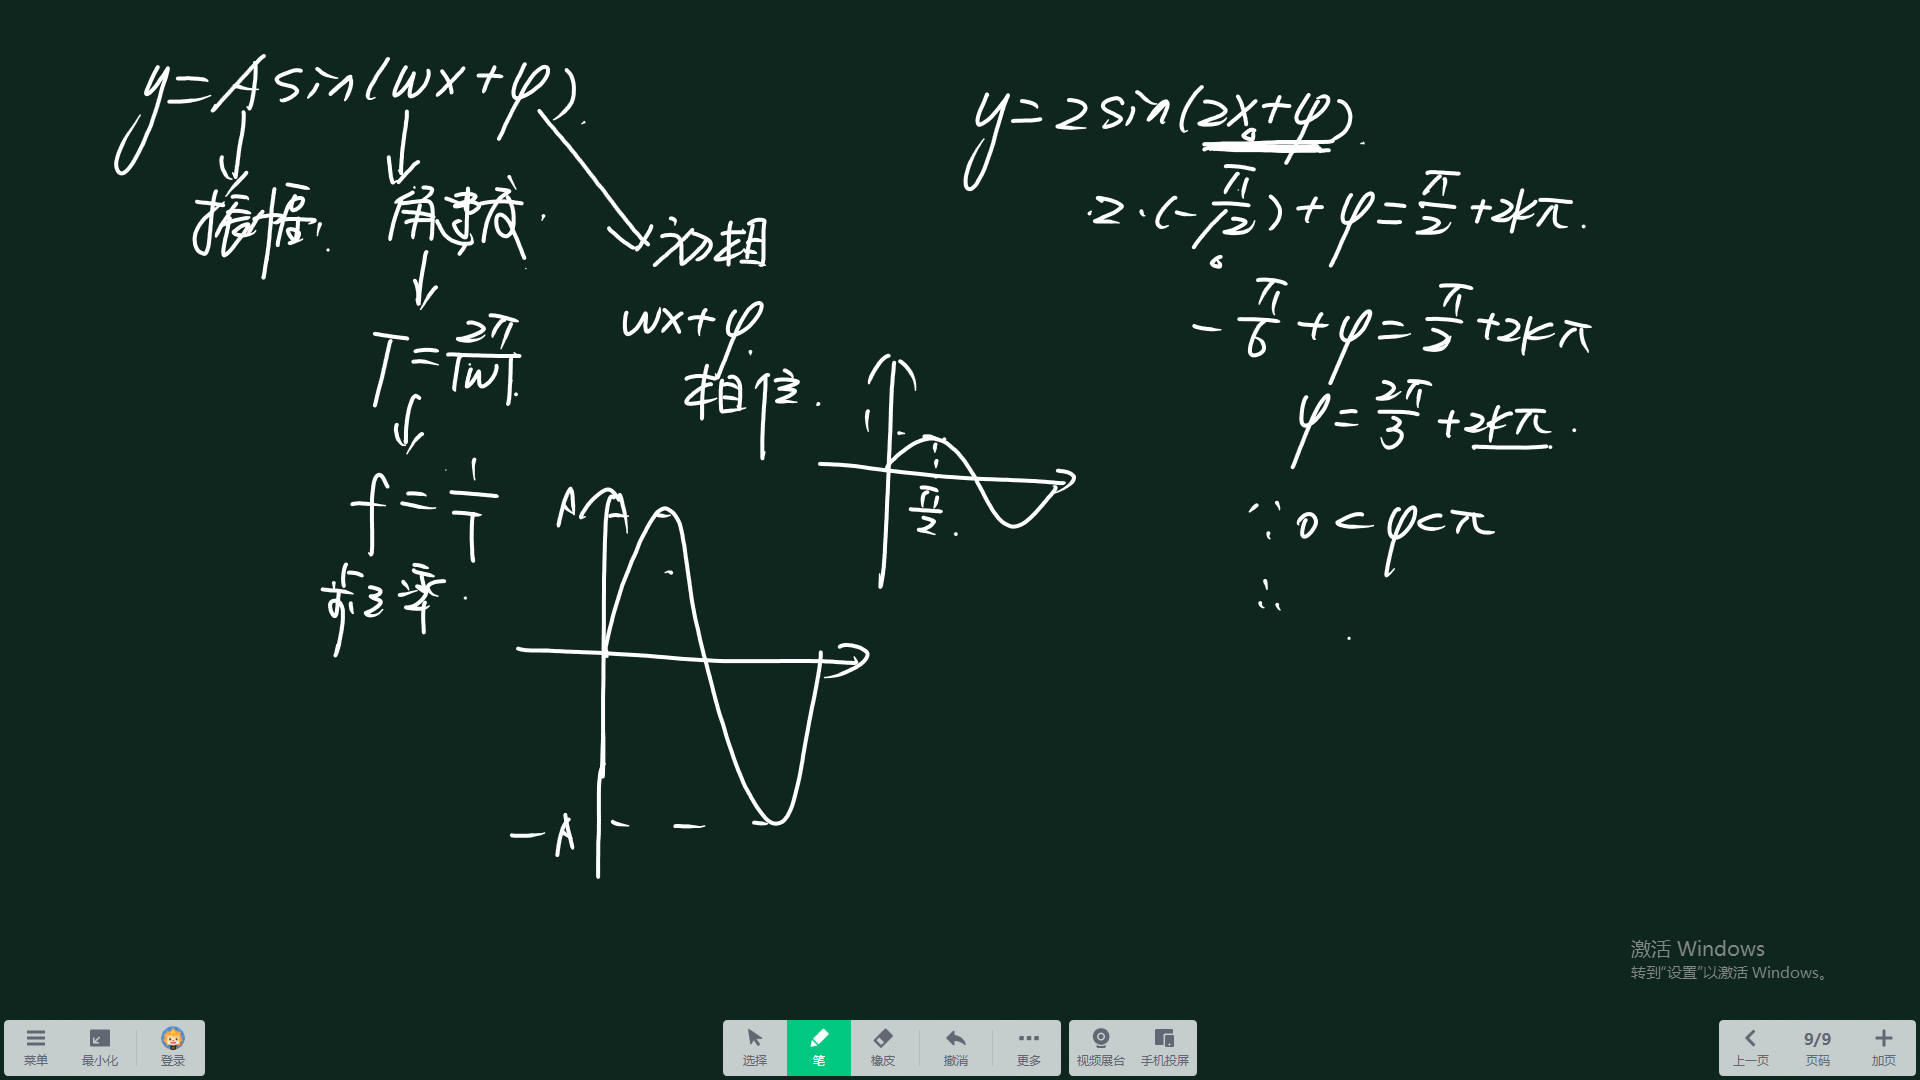 y=Asin(wx+φ)
振幅 角速度
初相
T=2π/|w|
wx+φ
相位
f=1/T
频率
A
-A
π/2
y=2sin(2x+φ)
2·(-π/12)+φ=π/2+2kπ.
-π/6+φ=π/2+2kπ
φ=2π/3+2kπ.
∵0<φ<π
∴
激活 Windows
转到“设置”以激活 Windows。
菜单 最小化 登录 选择 笔 橡皮 撤消 更多 视频展台 手机投屏 上一页 9/9 页码 加页